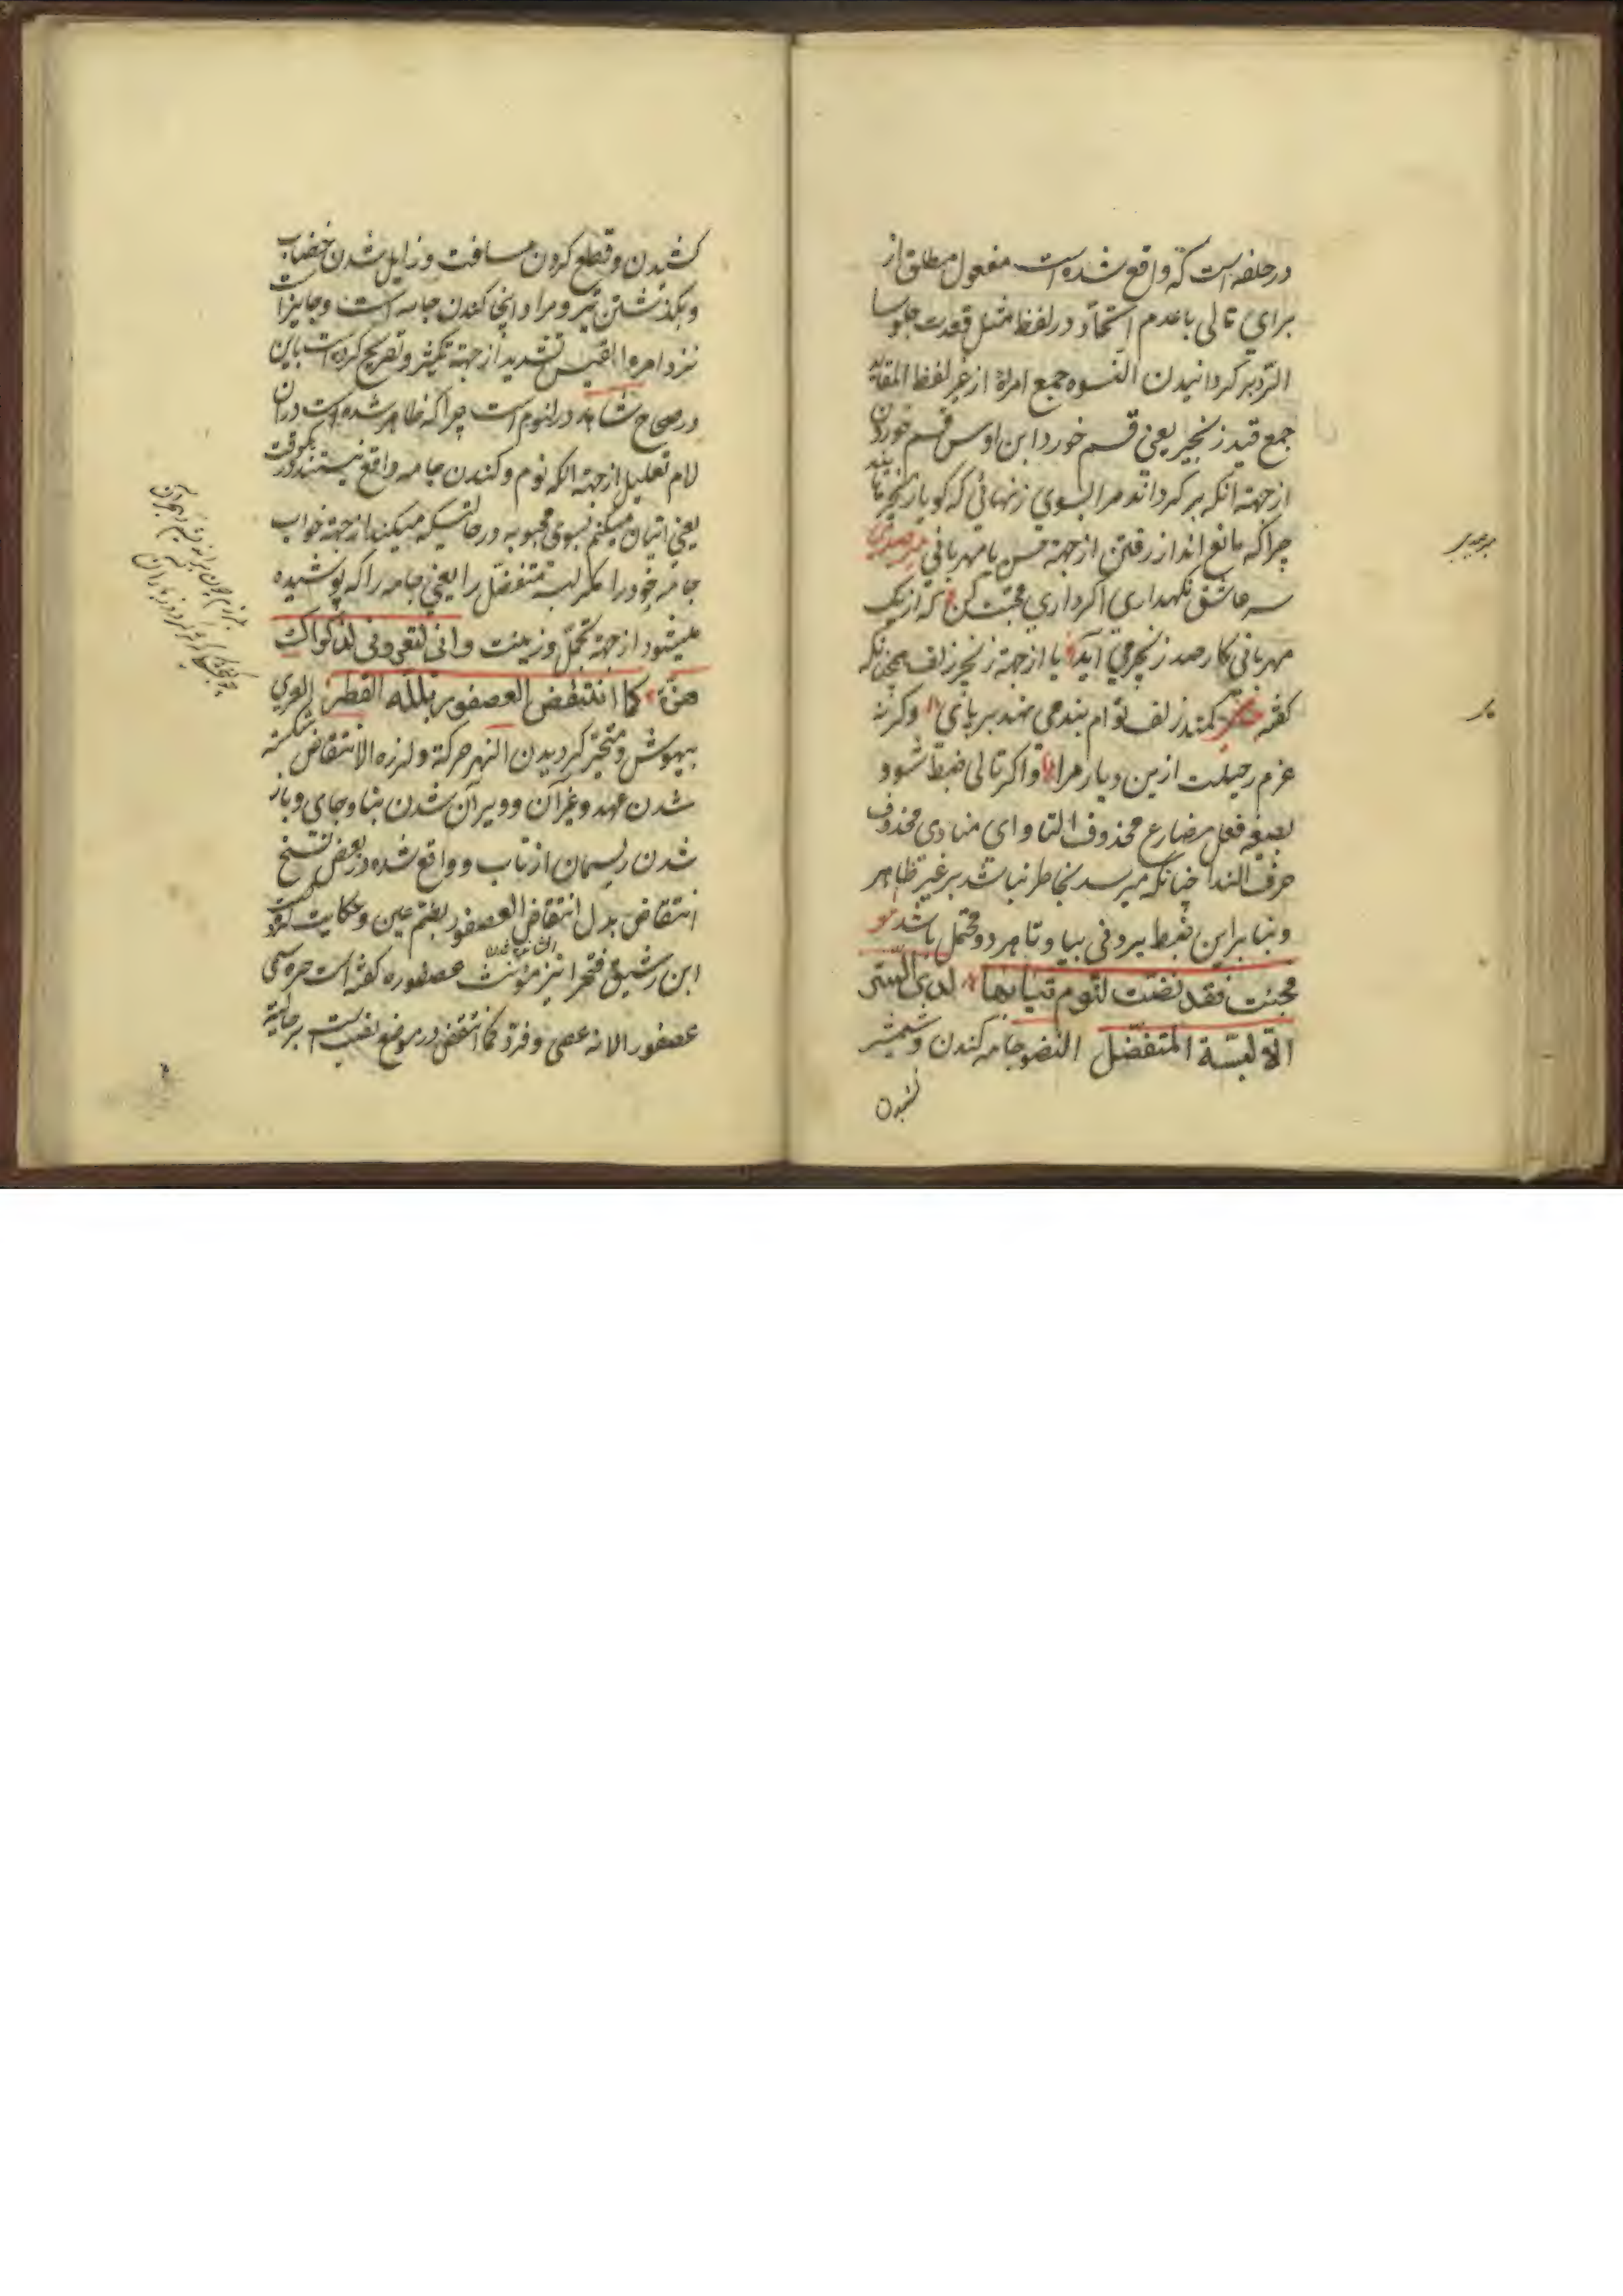 در حلفه است که واقع شده است مفعول مطلق از
برای تالی با عدم اتحاد در لفظ مثل قعدت جلوسا
الرد برگردانیدن النسوه جمع امراة از غیر لفظ المقاید
جمع قید زنجیر یعنی قسم خورد ابن اوس قسم خوردن
از جهته انکه برگرداند مرا بسوی زنهائی که گویا زنجیر
چرا که مانع اند از رفتن از جهته حسن یا مهربانی میرصیدی
سر عاشق نگهداری اگر داری محبت کن که از یک
مهربانی کار صد زنجیر می آید یا از جهته زنجیر زلف همچنانکه
گفته کمند زلف توام بند می نهد بر پای وگرنه
عزم رحیلت ازین دیار مرا و اگر تالی ضبط شود
بصیغه فعل مضارع محذوف التا و ای منادی محذوف
حرف الندا چنانکه میرسد بخاطر نباشد بر غیر ظاهر
و بنا بر این ضبط یردنی بیا و تا هر دو محتمل باشد
فجئت فقد نضت لنوم ثیابها لدی الستر
الا لبسة المتفضل النضو جامه کندن و شمشیر
کشیدن
کشیدن و قطع کردن مسافت و زایل شدن خضاب
و بگذشتن تیر و مراد اینجا کندن جامه است و جایز است
نزد امرء القیس تشدید از جهته تکثیر و تصریح کرده است باین
در صحاح شاهد در لنوم است چرا که ظاهر شده است در ان
لام تعلیل از جهته انکه نوم و کندن جامه واقع نیستند در یکوقت
یعنی اتیان میکنم بسوی محبوبه در حالتیکه میکند از جهته خواب
جامه خود را مگر لبسه متفضل را یعنی جامه را که پوشیده
میشود از جهته تجمل و زینت وانی لتعرونی لذکراک
هزة کما انتفض العصفور بلله القطر العری
بیهوش و متحیر گردیدن الهز حرکة و لرزه الانتقاض شکسته
شدن عهد و غیر آن و ویران شدن بنا و جای و باز
شدن ریسمان از تاب و واقع شده در بعض نسخ
انتقاض بدل انتفاض العصفور بضم عین و حکایت کرد
ابن رشیق فتحرا نیز مؤنث عصفوره گفته است حمزه سمی
عصفورا لانه عصی و فر کما انتفض در موضع نصب است بر حالیة
میرصیدی